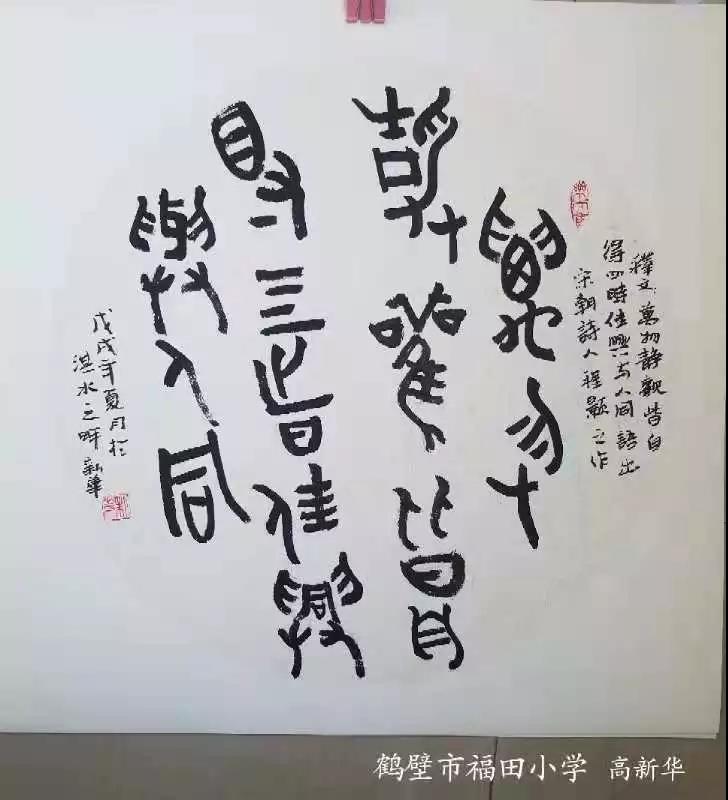 釋文萬物静觀皆自
得四時佳興与人同語出
宋朝詩人程顥之作
萬物
静觀皆自
得四時佳興
與人同
戊戌年夏月於
淇水之畔新華
鹤壁市福田小学 高新华